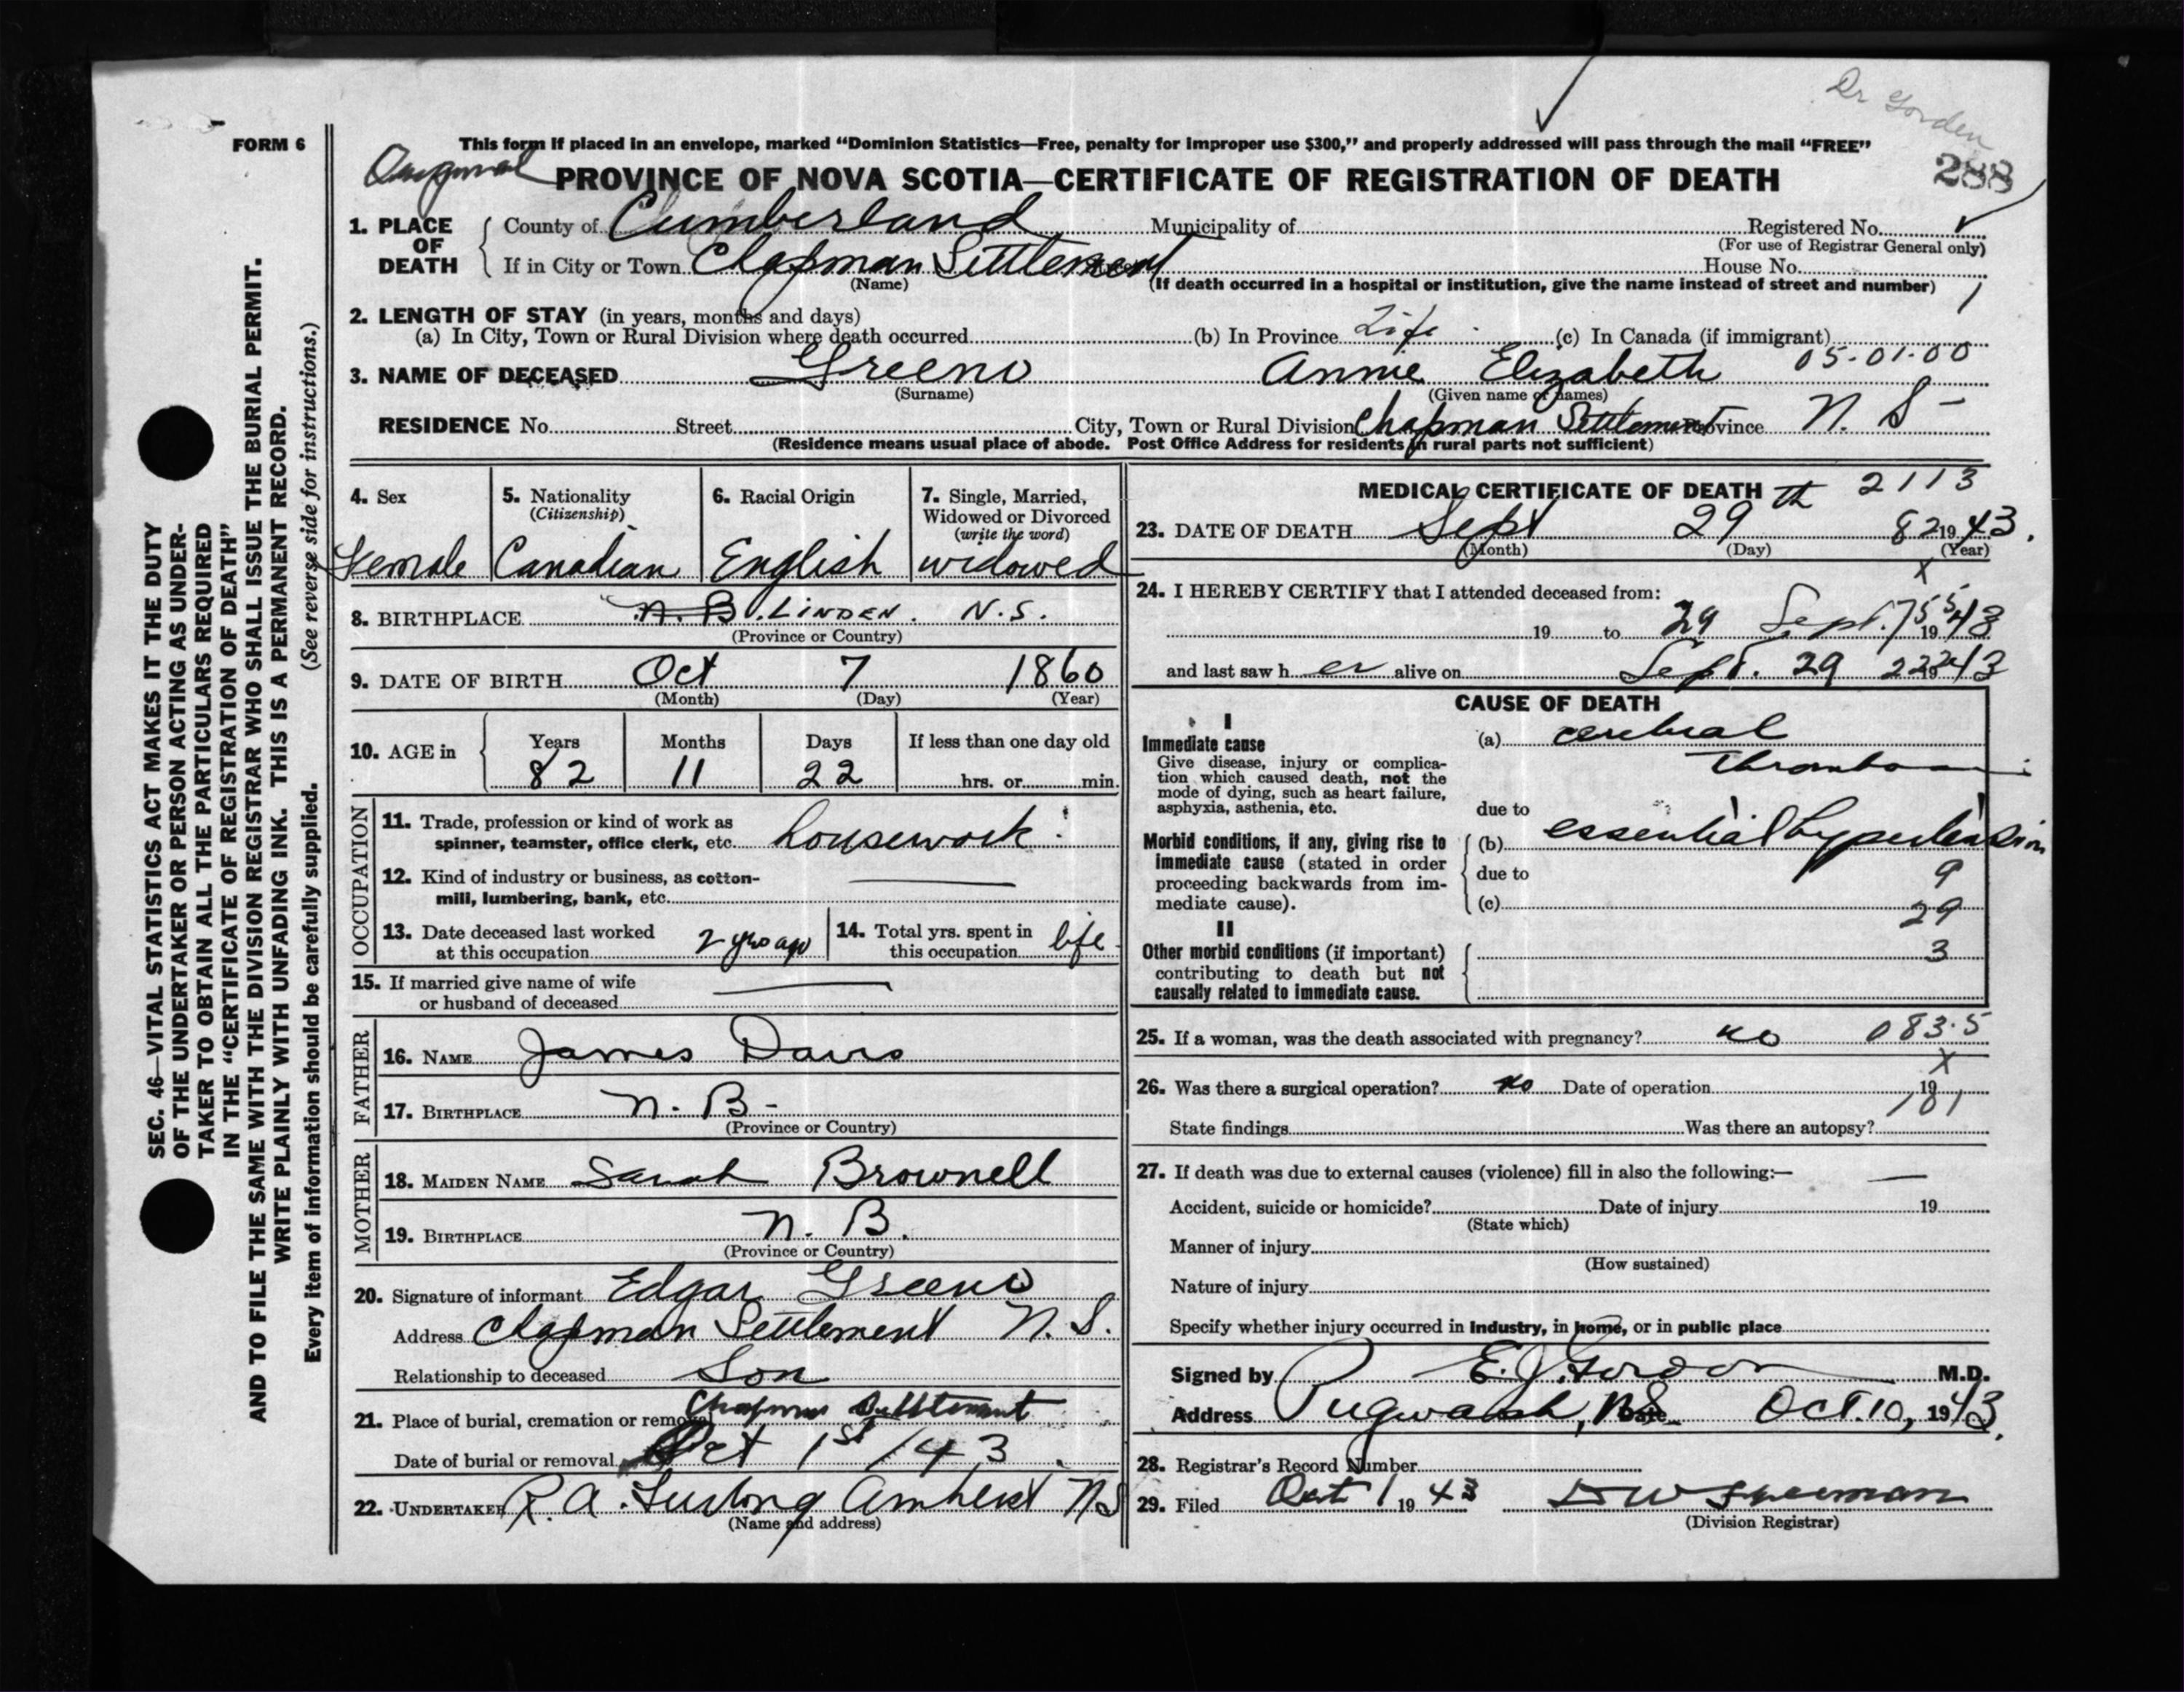 Dr Gorden
FORM 6
This form if placed in an envelope, marked "Dominion Statistics—Free, penalty for improper use $300," and properly addressed will pass through the mail "FREE"
288
PROVINCE OF NOVA SCOTIA—CERTIFICATE OF REGISTRATION OF DEATH
1. PLACE OF DEATH
County of Cumberland Municipality of Registered No.
(For use of Registrar General only)
If in City or Town Chapman Settlement House No.
(Name) (If death occurred in a hospital or institution, give the name instead of street and number) 1
2. LENGTH OF STAY (in years, months and days)
(a) In City, Town or Rural Division where death occurred (b) In Province Life (c) In Canada (if immigrant)
05-01-00
3. NAME OF DECEASED Greeno Annie Elizabeth
(Surname) (Given name or names)
RESIDENCE No. Street City, Town or Rural Division Chapman Settlement Province N. S-
(Residence means usual place of abode. Post Office Address for residents in rural parts not sufficient)
4. Sex
Female
5. Nationality
(Citizenship)
Canadian
6. Racial Origin
English
7. Single, Married,
Widowed or Divorced
(write the word)
widowed
8. BIRTHPLACE N.B. LINDEN. N.S.
(Province or Country)
9. DATE OF BIRTH Oct 7 1860
(Month) (Day) (Year)
10. AGE in Years Months Days If less than one day old
82 11 22 hrs. or min.
OCCUPATION
11. Trade, profession or kind of work as
spinner, teamster, office clerk, etc. housework
12. Kind of industry or business, as cotton-
mill, lumbering, bank, etc.
13. Date deceased last worked
at this occupation 2 yrs ago
14. Total yrs. spent in
this occupation life
15. If married give name of wife
or husband of deceased
FATHER
16. NAME James Davis
17. BIRTHPLACE N. B-
(Province or Country)
MOTHER
18. MAIDEN NAME Sarah Brownell
19. BIRTHPLACE N. B.
(Province or Country)
20. Signature of informant Edgar Greeno
Address Chapman Settlement N. S.
Relationship to deceased Son
21. Place of burial, cremation or removal Chapman Settlement
Date of burial or removal Oct 1st /43
22. UNDERTAKER R. A. Furlong Amherst NS
(Name and address)
MEDICAL CERTIFICATE OF DEATH 2113
23. DATE OF DEATH Sept 29th 82 1943.
(Month) (Day) (Year)
x
24. I HEREBY CERTIFY that I attended deceased from:
19 to 29 Sept. 755 1943
and last saw her alive on Sept. 29 222 1943
CAUSE OF DEATH
I
Immediate cause
Give disease, injury or complica-
tion which caused death, not the
mode of dying, such as heart failure,
asphyxia, asthenia, etc.
(a) cerebral
Thrombosis
due to
Morbid conditions, if any, giving rise to
immediate cause (stated in order
proceeding backwards from im-
mediate cause).
(b) essential hypertension
due to 9
(c) 29
II
Other morbid conditions (if important)
contributing to death but not
causally related to immediate cause.
3
25. If a woman, was the death associated with pregnancy? no 083.5
x
26. Was there a surgical operation? no Date of operation 19
101
State findings Was there an autopsy?
27. If death was due to external causes (violence) fill in also the following:—
Accident, suicide or homicide? Date of injury 19
(State which)
Manner of injury
(How sustained)
Nature of injury
Specify whether injury occurred in Industry, in home, or in public place
Signed by E. J. Gordon M.D.
Address Pugwash, NS Date Oct. 10, 1943.
28. Registrar's Record Number
29. Filed Oct 1 1943
(Division Registrar)
SEC. 46—VITAL STATISTICS ACT MAKES IT THE DUTY
OF THE UNDERTAKER OR PERSON ACTING AS UNDER-
TAKER TO OBTAIN ALL THE PARTICULARS REQUIRED
IN THE "CERTIFICATE OF REGISTRATION OF DEATH"
AND TO FILE THE SAME WITH THE DIVISION REGISTRAR WHO SHALL ISSUE THE BURIAL PERMIT.
WRITE PLAINLY WITH UNFADING INK. THIS IS A PERMANENT RECORD.
Every item of information should be carefully supplied. (See reverse side for instructions.)